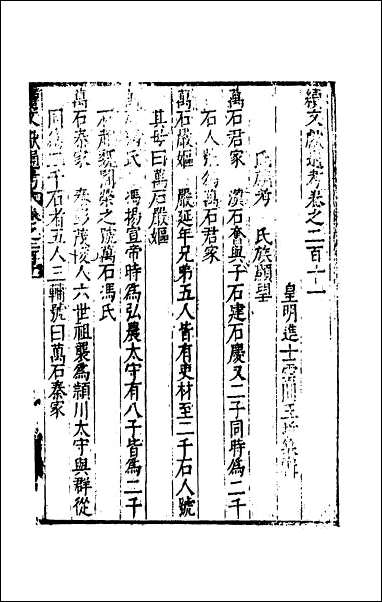 續文獻通考卷之二百十一
皇明進士雲間王圻纂輯
氏族考 氏族顯望
萬石君家 漢石奮與子石建石慶又二子同時為二千
石人號為萬石君家
萬石嚴嫗 嚴延年兄弟五人皆有吏材至二千石人號
其母曰萬石嚴嫗
萬石馮氏 馮揚宣帝時為弘農太守有八子皆為二千
石趙魏間榮之號萬石馮氏
萬石秦家 秦彭茂陵人六世祖襲為潁川太守與群從
同為二千石者五人三輔號曰萬石秦家